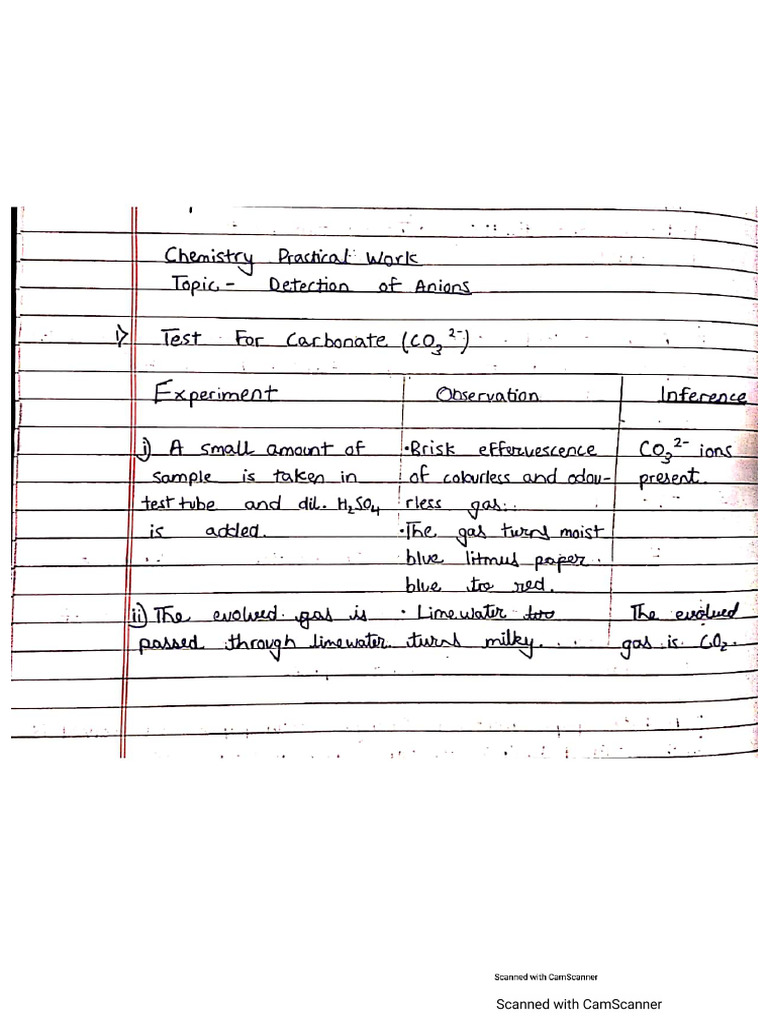 Chemistry Practical Work
Topic - Detection of Anions
1) Test For Carbonate (CO₃²⁻)
Experiment Observation Inference
i) A small amount of • Brisk effervescence CO₃²⁻ ions
sample is taken in of colourless and odou- present.
test tube and dil. H₂SO₄ rless gas.
is added. • The gas turns moist
blue litmus paper
blue to red.
ii) The evolved gas is • Limewater too The evolved
passed through limewater. turns milky. gas is CO₂.
Scanned with CamScanner
Scanned with CamScanner